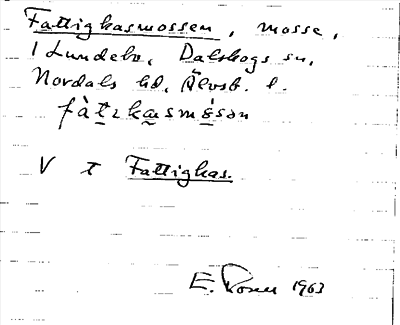 Fattighasmossen, mosse,
i Lundebo, Dalskogs sn,
Nordals hd, Älvsb. l.
V t Fattighas.
E. Rosén 1963